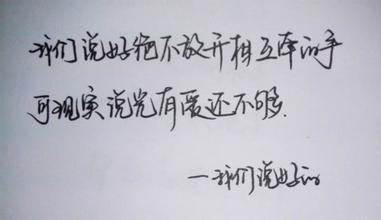 我们说好绝不放开相互牵的手
可现实说光有爱还不够.
——我们说好的